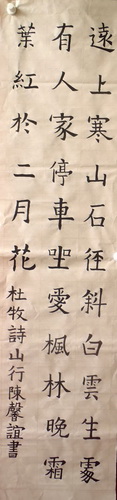 遠上寒山石徑斜白雲生處
有人家停車坐愛楓林晚霜
葉紅於二月花
杜牧詩山行陳馨誼書